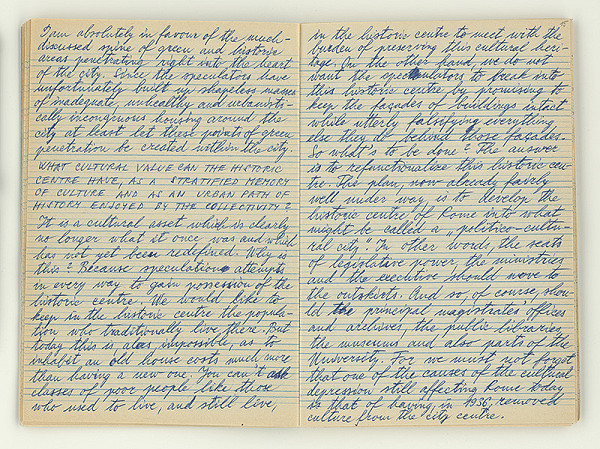 I am absolutely in favour of the much-
discussed spine of green and historic
areas penetrating right into the heart
of the city. Since the speculators have
unfortunately built up shapeless masses
of inadequate, unhealthy and urbanisti-
cally incongruous housing around the
city at least let these points of green
penetration be created within the city.
WHAT CULTURAL VALUE CAN THE HISTORIC
CENTRE HAVE, AS A STRATIFIED MEMORY
OF CULTURE AND AS AN URBAN PATH OF
HISTORY ENJOYED BY THE COLLECTIVITY?
It is a cultural asset which is clearly
no longer what it once was and which
has not yet been redefined. Why is
this? Because speculation attempts
in every way to gain possession of the
historic centre. We would like to
keep in the historic centre the popula-
tion who traditionally live there. But
today this is also impossible, as to
inhabit an old house costs much more
than having a new one. You can't ask
classes of poor people like those
who used to live, and still live,
15
in the historic centre to meet with the
burden of preserving this cultural heri-
tage. On the other hand, we do not
want the speculators to break into
this historic centre by promising to
keep the façades of buildings intact
while utterly falsifying everything
else they all behind those façades.
So what's to be done? The answer
is to refunctionalize this historic cen-
tre. This plan, now already fairly
well under way is to develop the
historic centre of Rome into what
might be called a „politico-cultu-
ral city." In other words, the seats
of legislative power, the ministries
and the executive should move to
the outskirts. And so, of course, shou-
ld the principal magistrates' offices
and archives, the public libraries,
the museums and also parts of the
University. For we must not forget
that one of the causes of the cultural
depression still affecting Rome today
is that of having, in 1936, removed
culture from the city centre.